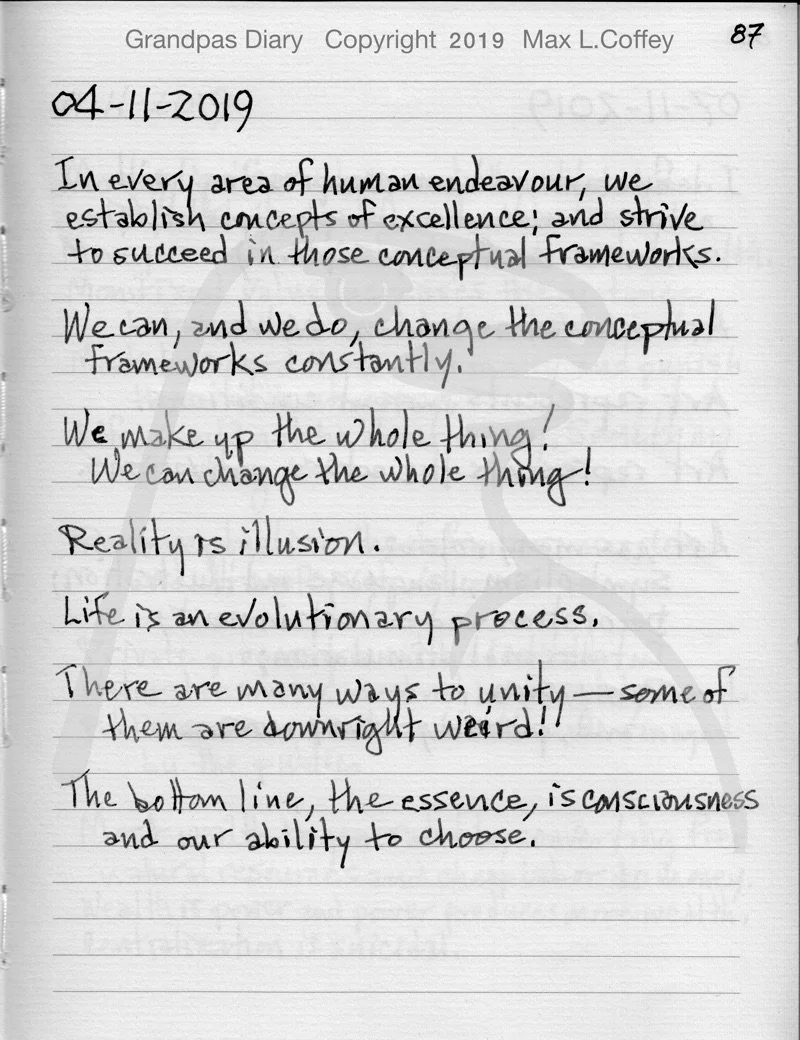 Grandpas Diary Copyright 2019 Max L.Coffey
87
04-11-2019
In every area of human endeavour, we
establish concepts of excellence; and strive
to succeed in those conceptual frameworks.
We can, and we do, change the conceptual
frameworks constantly.
We make up the whole thing!
We can change the whole thing!
Reality is illusion.
Life is an evolutionary process.
There are many ways to unity — some of
them are downright weird!
The bottom line, the essence, is consciousness
and our ability to choose.